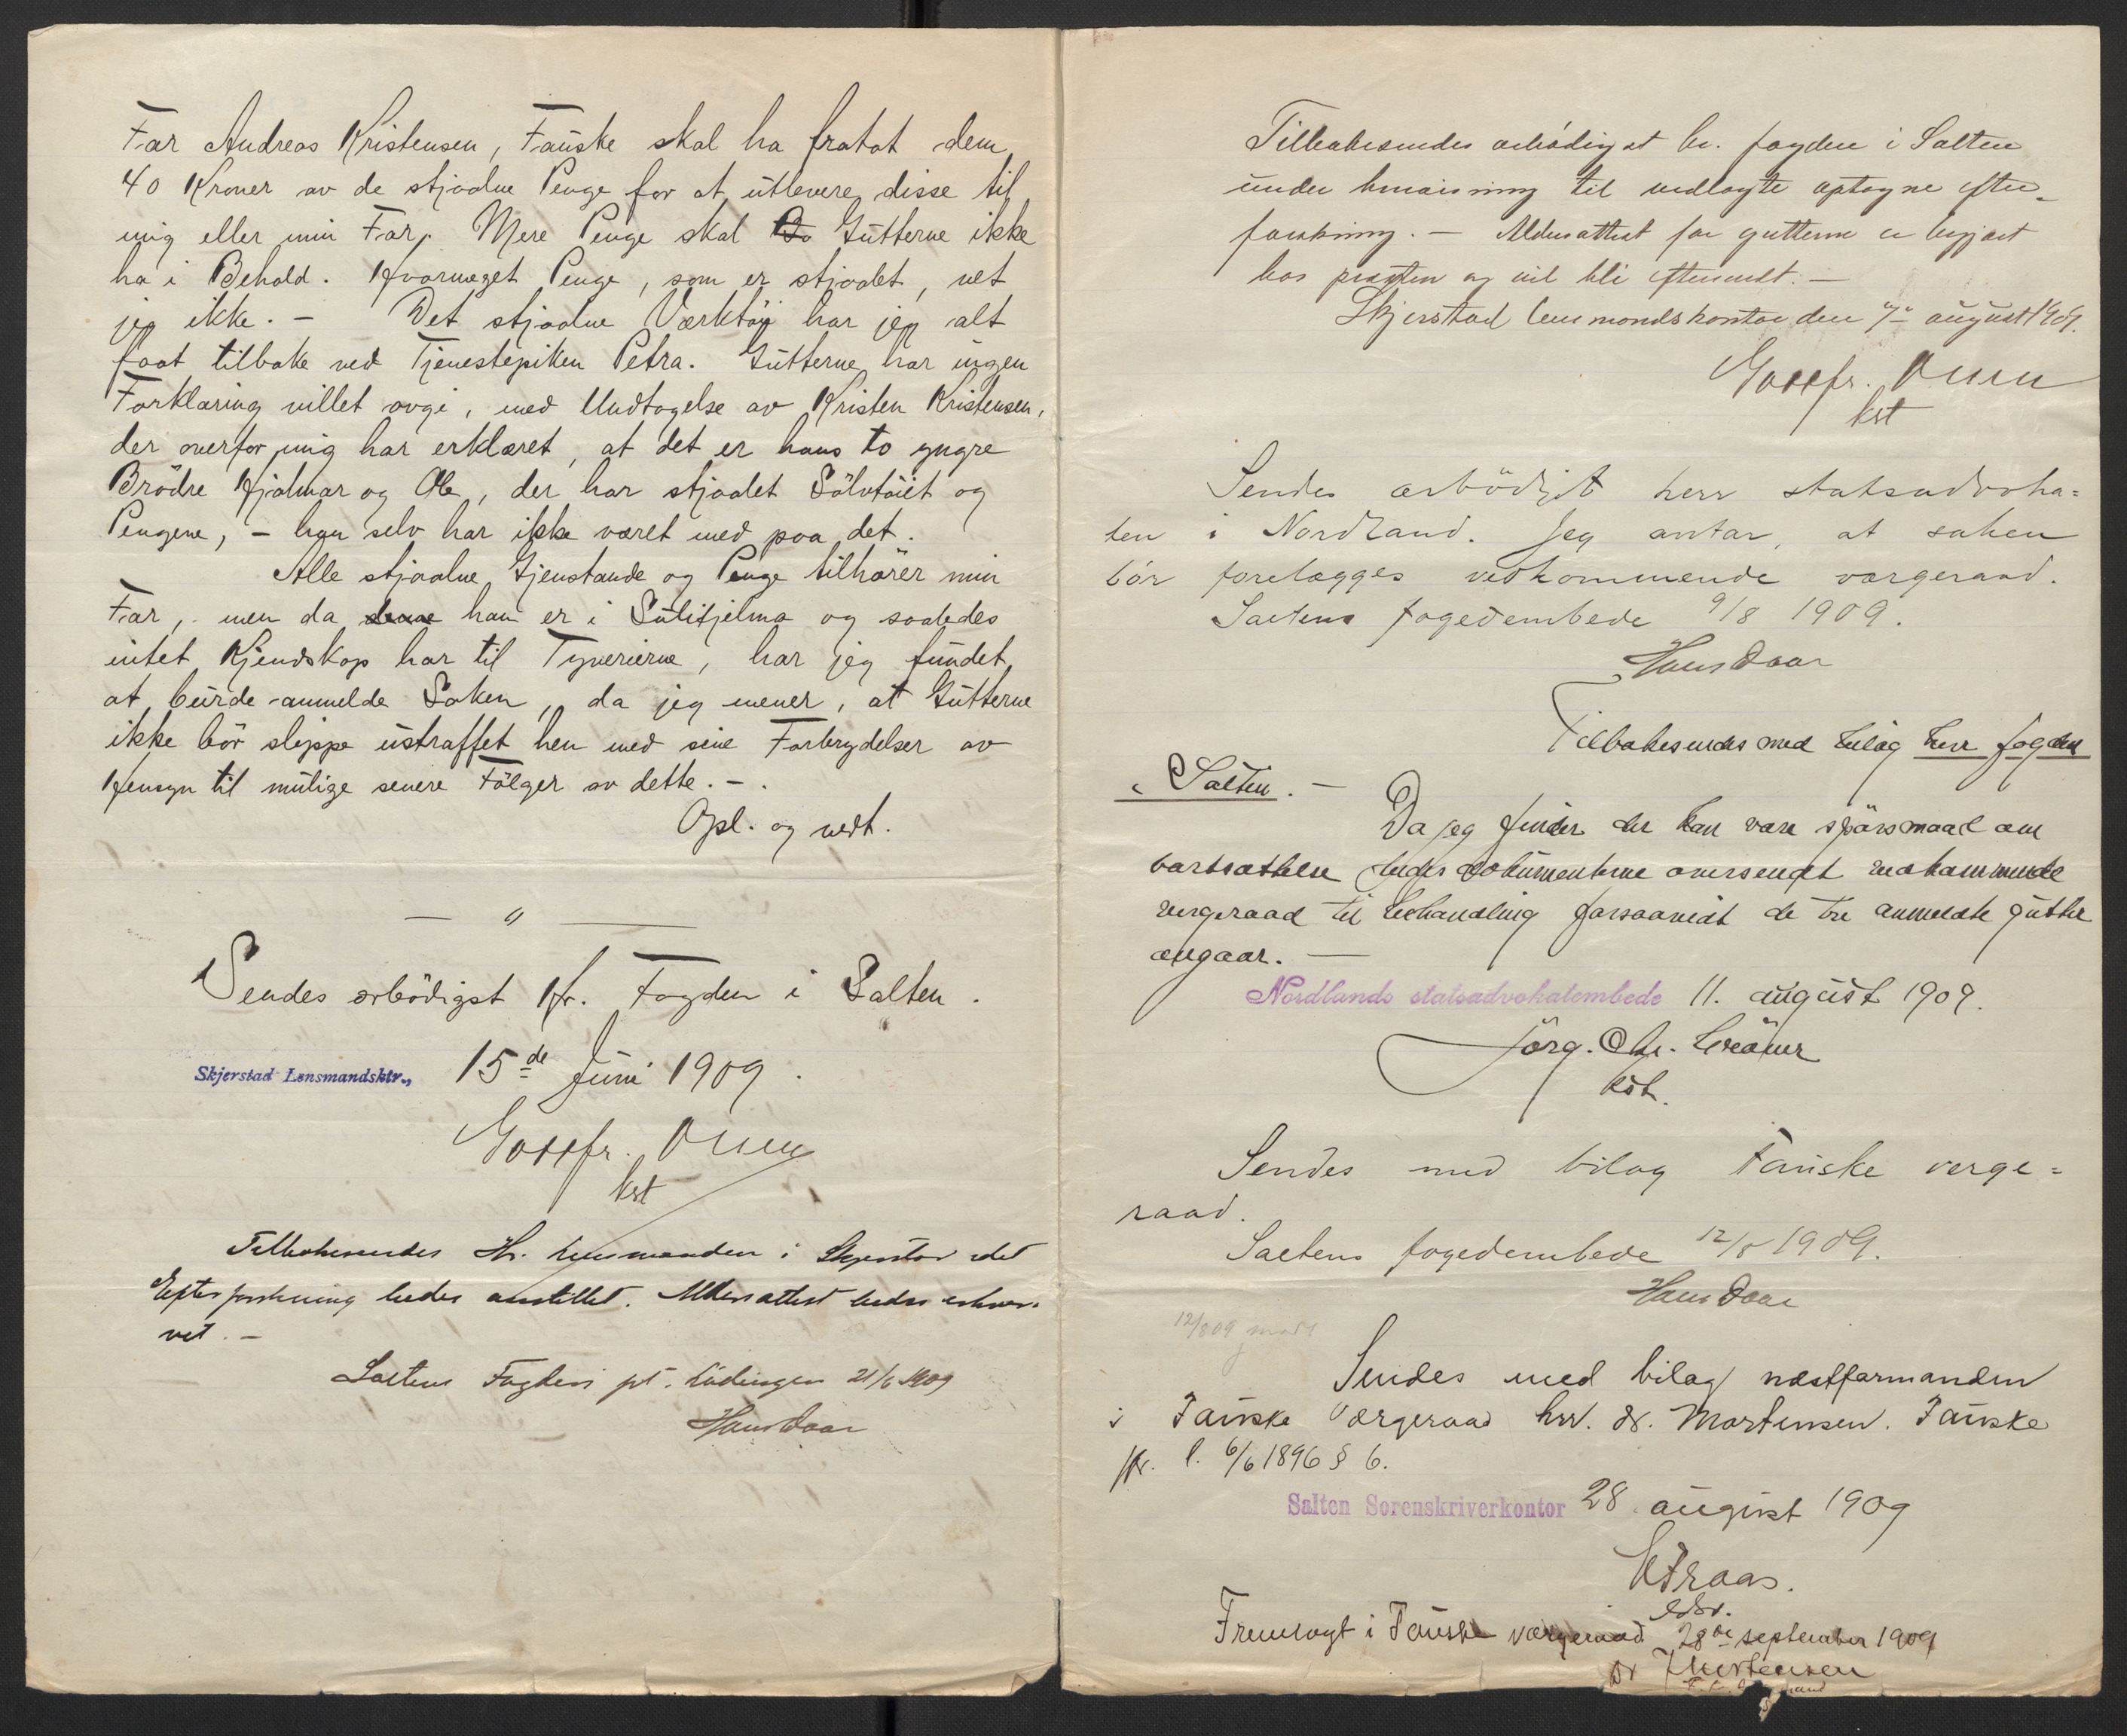 Far Andreas Kristensen, Fauske skal ha fratat dem
40 Kroner av de stjaalne Penge for at utlevere disse til
mig eller min Far. Mere Penge skal Gutterne ikke
ha i Behold. Hvormeget Penge, som er stjaalet, vet
jeg ikke. – Det stjaalne Værktøi har jeg alt
faat tilbake ved Tjenestepiken Petra. Gutterne har ingen
Forklaring villet avgi, med Undtagelse av Kristen Kristensen,
der overfor mig har erklæret, at det er hans to yngre
Brödre Hjalmar og Ole, der har stjaalet Sölvtöiet og
Pengene, – han selv har ikke været med paa det.
Alle stjaalne Gjenstande og Penge tilhörer min
Far, men da han er i Sulitjelma og saaledes
intet Kjendskap har til Tyverierne, har jeg fundet
at burde anmelde Saken, da jeg mener, at Gutterne
ikke bör slippe ustraffet hen med sine Forbrydelser av
Hensyn til mulige senere Fölger av dette. – .
Opl. og vedt.
— " —
Sendes ærbödigst Hr. Fogden i Salten.
Skjerstad Lensmandsktr., 15de Juni 1909.
Gottfr. Olsen
kst
Tilbakesendes Hr. lensmanden i Skjerstad idet
Efterforskning bedes anstillet. Aldersattest bedes erhver-
vet. –
Saltens Fogderi pt. Lödingen 21/6 1909
Hans Daae
Tilbakesendes ærbödigst hr. fogden i Salten
under henvisning til vedlagte optagne efter-
forskning. – Aldersattest for gutterne er begjært
hos presten og vil bli eftersendt. –
Skjerstad lensmandskontor den 7de august 1909.
Gottfr. Olsen
kst
Sendes ærbödigst herr statsadvoka=
ten i Nordland. Jeg antar, at saken
bör forelægges vedkommende værgeraad.
Saltens fogedembede 9/8 1909.
Hans Daae
Tilbakesendes med bilag herr fogden
i Salten. –
Da jeg finder der kan være spörsmaal om
bortsættelse bedes dokumenterne oversendt vedkommende
vergeraad til behandling forsaavidt de tre anmeldte gutter
angaar. –
Nordlands statsadvokatembede 11. august 1909.
Jörg. Chr.
kst.
Sendes med bilag Fauske verge=
raad.
Saltens fogedembede 12/8 1909.
Hans Daae
12/8 09
Sendes med bilag næstformanden
i Fauske Værgeraad hrr. dr. Mortensen. Fauske
fr. l. 6/6 1896 § 6.
Salten Sorenskriverkontor 28. august 1909
Fremlagt i Fauske værgeraad 28de september 1909
Dr Mortensen